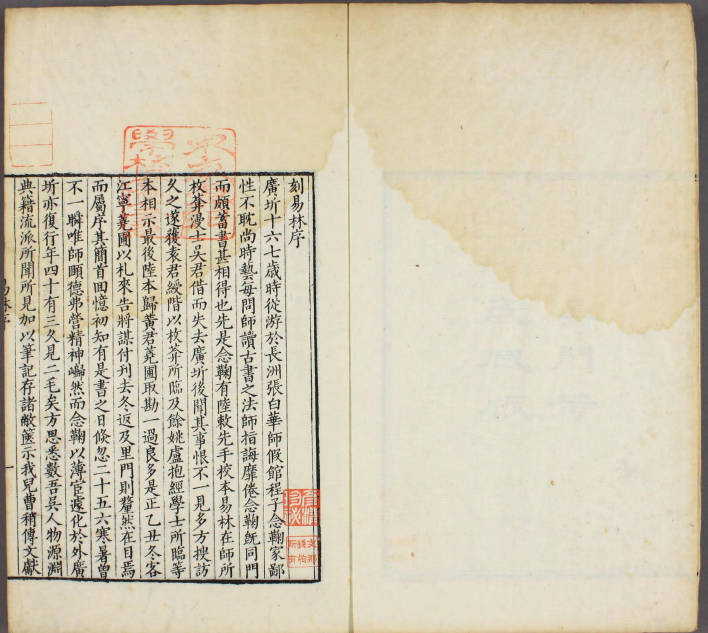 刻易林序
廣圻十六七歳時從游於長洲張白華師假館程子念鞠家鄙
性不耽尚時藝每問師讀古書之法師指誨靡倦念鞠旣同門
而頗蓄書甚相得也先是念鞠有陸敕先手校本易林在師所
枚菴漫士吳君借而失去廣圻後聞其事恨不一見多方搜訪
久之遂獲袁君綬階以枚菴所臨及餘姚盧抱經學士所臨等
本相示最後陸本歸黃君蕘圃取勘一過良多是正乙丑冬客
江寧蕘圃以札來告將謀付刋去冬返及里門則釐然在目焉
而屬序其簡首回憶初知有是書之日倏忽二十五六寒暑曾
不一瞬唯師頤德弗營精神巋然而念鞠以薄宦遽化於外廣
圻亦復行年四十有三久見二毛矣方思悉數吾吳人物源淵
典籍流派所聞所見加以筆記存諸敝篋示我兒曹稍傳文獻
易林序
一